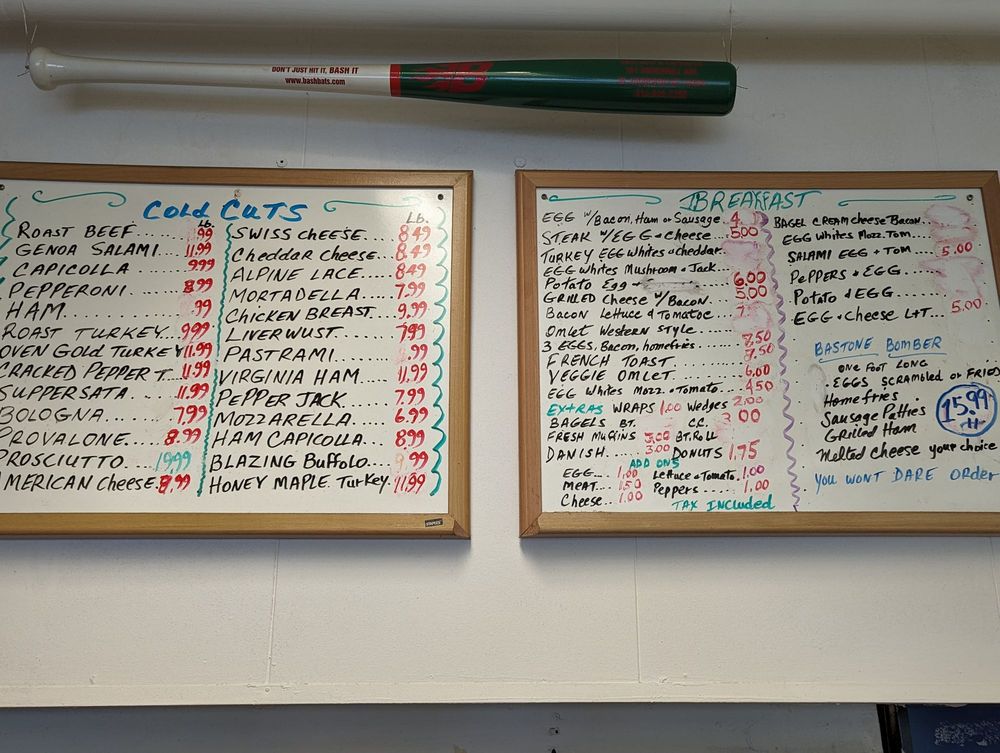 DON'T JUST HIT IT, BASH IT
www.bashbats.com
COLD CUTS
Lb.
ROAST BEEF... .99
GENOA SALAMI... 11.99
CAPICOLLA 9.99
PEPPERONI... 8.99
HAM... .99
ROAST TURKEY... 9.99
OVEN GOLD TURKEY 11.99
CRACKED PEPPER T... 11.99
SUPPERSATA.... 11.99
BOLOGNA.... 7.99
PROVALONE... 8.99
PROSCIUTTO.... 19.99
AMERICAN CHEESE. 8.99
Lb.
SWISS CHEESE.... 8.49
Cheddar Cheese... 8.49
ALPINE LACE.... 8.49
MORTADELLA.... 7.99
CHICKEN BREAST... 9.99
LIVERWUST..... 7.99
PASTRAMI..... .99
VIRGINIA HAM.... 11.99
PEPPER JACK.... 7.99
MOZZARELLA.... 6.99
HAM CAPICOLLA... 8.99
BLAZING Buffalo.... 9.99
HONEY MAPLE Turkey.. 11.99
STAPLES
BREAKFAST
EGG w/Bacon, Ham or Sausage. 4.
STEAK w/EGG + Cheese 5.00
TURKEY EGG Whites + cheddar
EGG Whites Mushroom + Jack..
Potato Egg + 6.00
GRILLED Cheese w/Bacon... 5.00
Bacon Lettuce + Tomatoe 7.
Omlet Western Style..
3 EGGS, Bacon, homefries.. 8.50
FRENCH TOAST.... 7.50
VEGGIE OMLET... 6.00
EGG Whites Mozz. + Tomato.. 4.50
EXTRAS WRAPS 1.00 Wedges 2.00
BAGELS BT. C.C. 3.00
FRESH Muffins 3.00 BT. Roll
DANISH..... 3.00 DONUTS 1.75
ADD ONS
EGG.... 1.00 Lettuce + Tomato. 1.00
MEAT.... 1.50 Peppers ..... 1.00
Cheese... 1.00
TAX INCLUDED
BAGEL CREAM Cheese Bacon..
EGG Whites Mozz. Tom...
SALAMI EGG + TOM 5.00
PEPPERS + EGG....
Potato + EGG...
EGG + Cheese L+T... 5.00
BASTONE BOMBER
ONE FOOT LONG
. EGGS, SCRAMBLED or FRIED
Homefries
Sausage Patties
Grilled Ham
Melted cheese your choice
15.99
+t
YOU WONT DARE ORDER